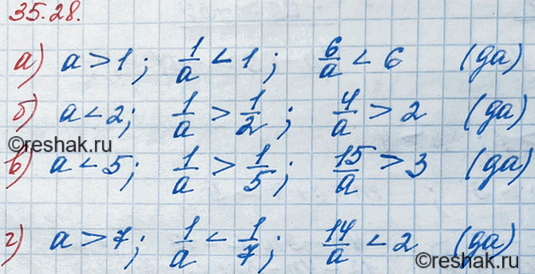 35.28.
а) a > 1; 1/a < 1; 6/a < 6 (да)
б) a < 2; 1/a > 1/2; 4/a > 2 (да)
©reshak.ru
в) a < 5; 1/a > 1/5; 15/a > 3 (да)
г) a > 7; 1/a < 1/7; 14/a < 2 (да)
©reshak.ru